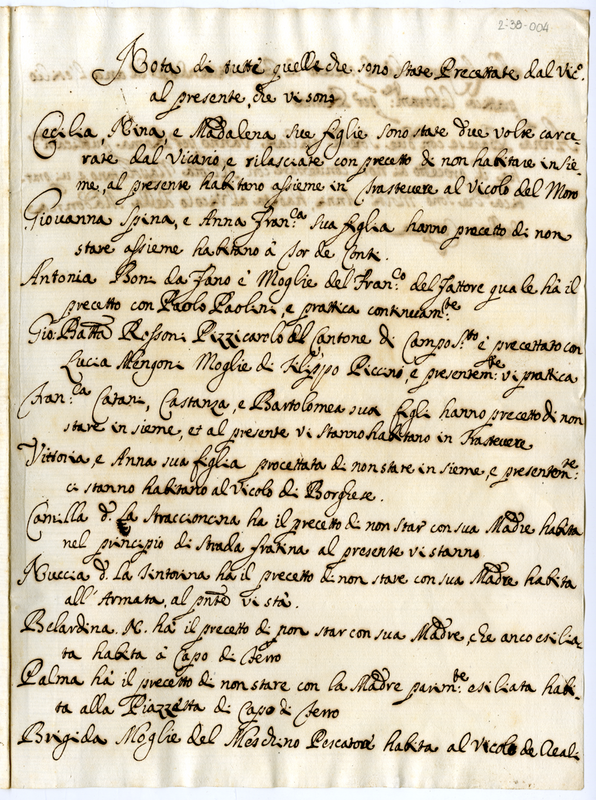 2-38-004
Nota di tutte quelle che sono state Precettate dal Vic.o
al presente, che vi sono
Cecilia, Nina, e Madalena sue figlie sono state due volte carce-
rate dal Vicario, e rilasciate con precetto di non habitare insie-
me, al presente habitano assieme in Trastevere al Vicolo del Moro
Giovanna Spina, e Anna Fran.ca sua figlia hanno precetto di non
stare assieme habitano à Tor de Conti.
Antonia Boni da Fano è Moglie del Fran.co del fattore quale hà il
precetto con Paolo Paolini, e prattica continuam.te
Gio: Batta Rossoni Pizzicarolo del Cantone di Campo S.to è precettato con
Lucia Mengoni Moglie di Filippo Piccino, e presentem.te vi prattica
Fran.ca Catani, Costanza, e Bartolomea sua figli hanno precetto di non
stare in sieme, et al presente vi stanno habitano in Trastevere
Vittoria, e Anna sua figlia procettata di non stare in sieme, e presentem.te:
ci stanno habitano al Vicolo di Borghese.
Camilla d. la Straccioncina ha il precetto di non star con sua Madre habita
nel principio di strada fratina al presente vi stanno
Nuccia d. la Tintorina ha il precetto di non stare con sua Madre habita
all' Armata, al pnte vi stà.
Belardina N. hà il precetto di non star con sua Madre, che anco esilia-
ta habita à Capo di ferro
Palma hà il precetto di non stare con la Madre parim.te esiliata habi-
ta alla Piazzetta di Capo di ferro
Brigida Moglie del Meschino Pescatore habita al Vicolo de